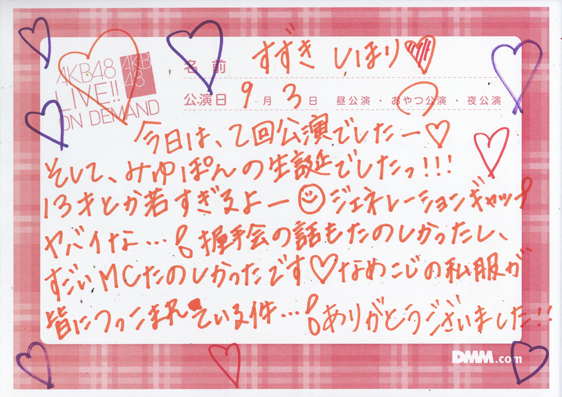 AKB48
LIVE!!
ON DEMAND
AKB
48
名 前 すずき しほり♡
公演日 9月 3日 昼公演・おやつ公演・夜公演
今日は、2回公演でしたー♡
そして、みゆぽんの生誕でしたっ!!!
13才とか若すぎるよー☺ジェネレーションギャップ
ヤバイな…!握手会の話もたのしかったし、
すごいMCたのしかったです♡なめこじの私服が
皆につっこまれている件…!ありがとうございました!!
DMM.com